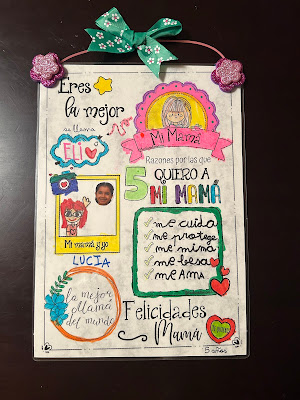 Eres
la mejor
se llama
ELi
Mi Mamá
Razones por las que
5 QUIERO A
MI MAMÁ
Mi mamá y yo
LUCIA
me cuida
me protege
me mima
me besa
me AMA
la mejor
Mamá
del mundo
Felicidades
Mamá
5 años